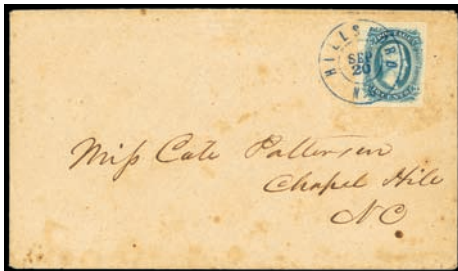 HILLSBORO
SEP
20
N.C.
Miſs Cate Patterson
Chapel Hill
NC